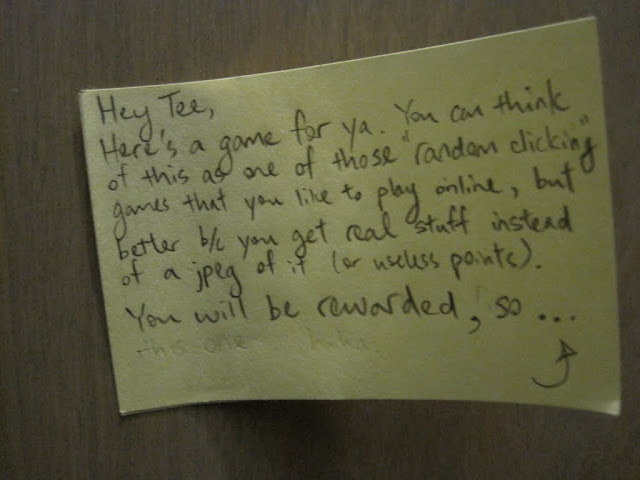 Hey Tee,
Here's a game for ya. You can think
of this as one of those "random clicking"
games that you like to play online, but
better b/c you get real stuff instead
of a jpeg of it (or useless points).
You will be rewarded, so ...
this one haha.